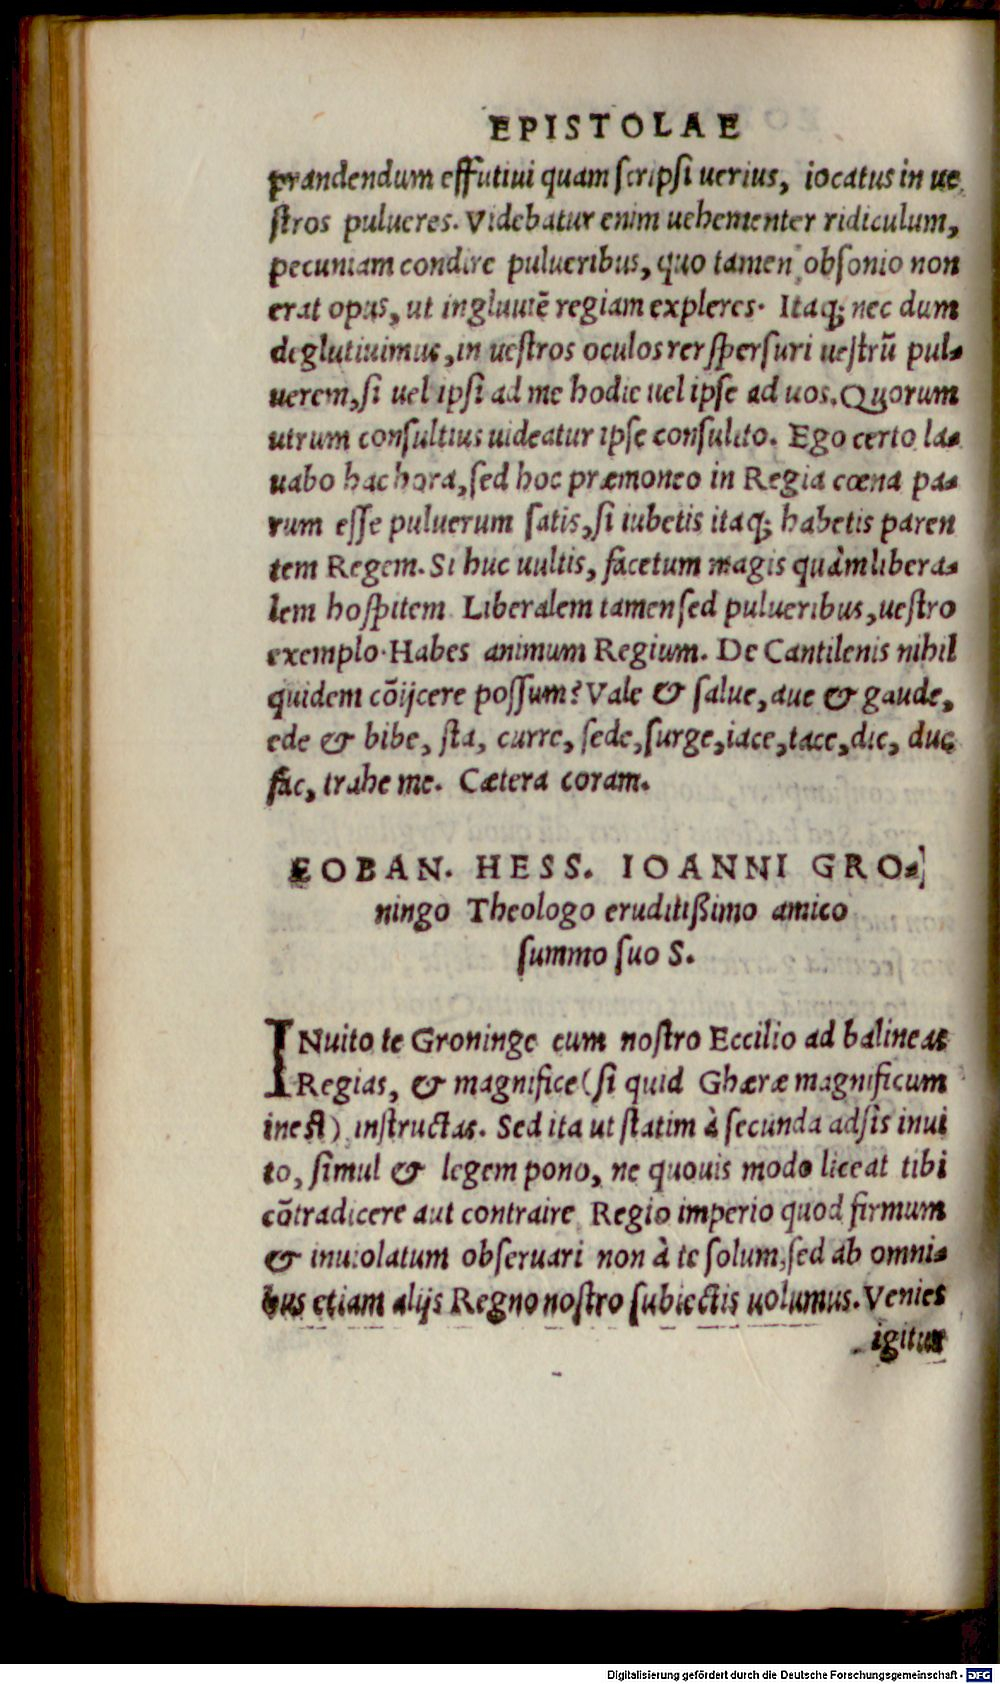 EPISTOLAE
prandendum effutiui quam scripsi uerius, iocatus in ue
stros pulueres. Videbatur enim uehementer ridiculum,
pecuniam condire pulueribus, quo tamen obsonio non
erat opus, ut ingluuiē regiam expleres. Itaq; nec dum
deglutiuimus, in uestros oculos rerspersuri uestrū pul-
uerem, si uel ipsi ad me hodie uel ipse ad uos. Quorum
utrum consultius uideatur ipse consulito. Ego certo la-
uabo hac hora, sed hoc præmoneo in Regia cœna pa-
rum esse puluerum satis, si iubetis itaq; habetis paren
tem Regem. Si huc uultis, facetum magis quàm libera-
lem hospitem Liberalem tamen sed pulueribus, uestro
exemplo. Habes animum Regium. De Cantilenis nihil
quidem cōijcere possum? Vale & salue, aue & gaude,
ede & bibe, sta, curre, sede, surge, iace, tace, dic, duc
fac, trahe me. Cætera coram.
EOBAN. HESS. IOANNI GRO-
ningo Theologo eruditißimo amico
summo suo S.
INuito te Groninge cum nostro Eccilio ad balineas
Regias, & magnifice (si quid Ghæræ magnificum
inest) instructas. Sed ita ut statim à secunda adsis inui
to, simul & legem pono, ne quouis modo liceat tibi
cōtradicere aut contraire Regio imperio quod firmum
& inuiolatum obseruari non à te solum, sed ab omni-
bus etiam alijs Regno nostro subiectis uolumus. Venies
igitur
Digitalisierung gefördert durch die Deutsche Forschungsgemeinschaft - DFG